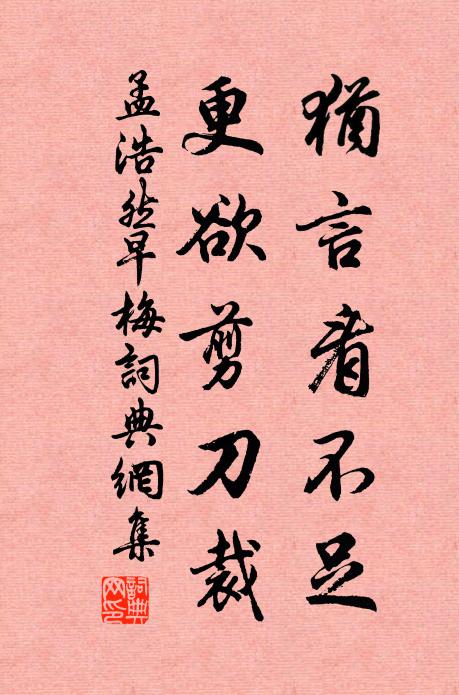 猶言看不足
更欲剪刀裁
孟浩然早梅詞典網集
詞典網印